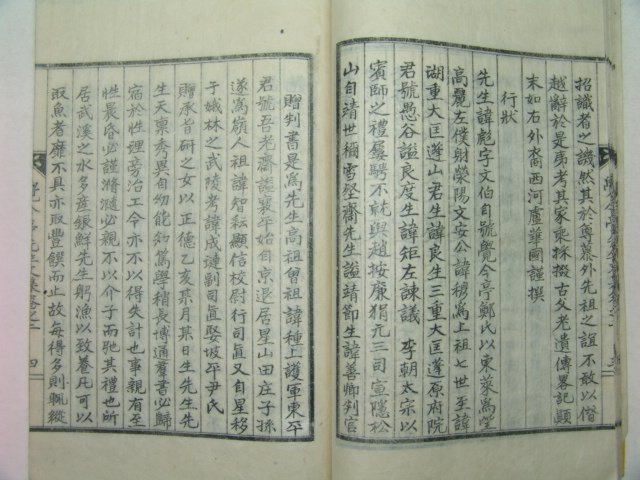 招識者之譏然其於尊慕外先祖之誼不敢以僭
越辭於是乎考其家乘採掇古父老遺傳畧記顚
末如右外裔西河盧華國謹撰
行狀
先生諱彪字文伯自號覺今亭鄭氏以東萊爲望
高麗左僕射滎陽文安公諱穆爲上祖七世至諱
湖重大匡蓬山君生諱良生三重大匡蓬原府院
君號愚谷諡良度生諱矩左諫議李朝太宗以
賓師之禮屢騁不就與趙按廉狷元三司宣隱松
山自靖世稱雪壑齋先生諡靖節生諱善卿判官
贈判書是爲先生高祖曾祖諱種上護軍東平
君號吾老齋諡襄平始自京退居星山田庄子孫
遂爲嶺人祖諱智耘顯信校尉行司直又自星移
于娥林之武陵考諱成璉副司直娶坡平尹氏
贈承旨硏之女以正德乙亥某月某日生先生先
生天稟秀異自幼能約爲學稍長博通羣書必歸
宿於性理旁治工令亦不以得失計也事親有至
性晨昏必謹滫瀡必親不以介子而弛其禮也所
居武溪之水多産銀鮮先生躬漁以致養凡可以
取魚者靡不具亦取豐饌而止故每得多則輒縱
四